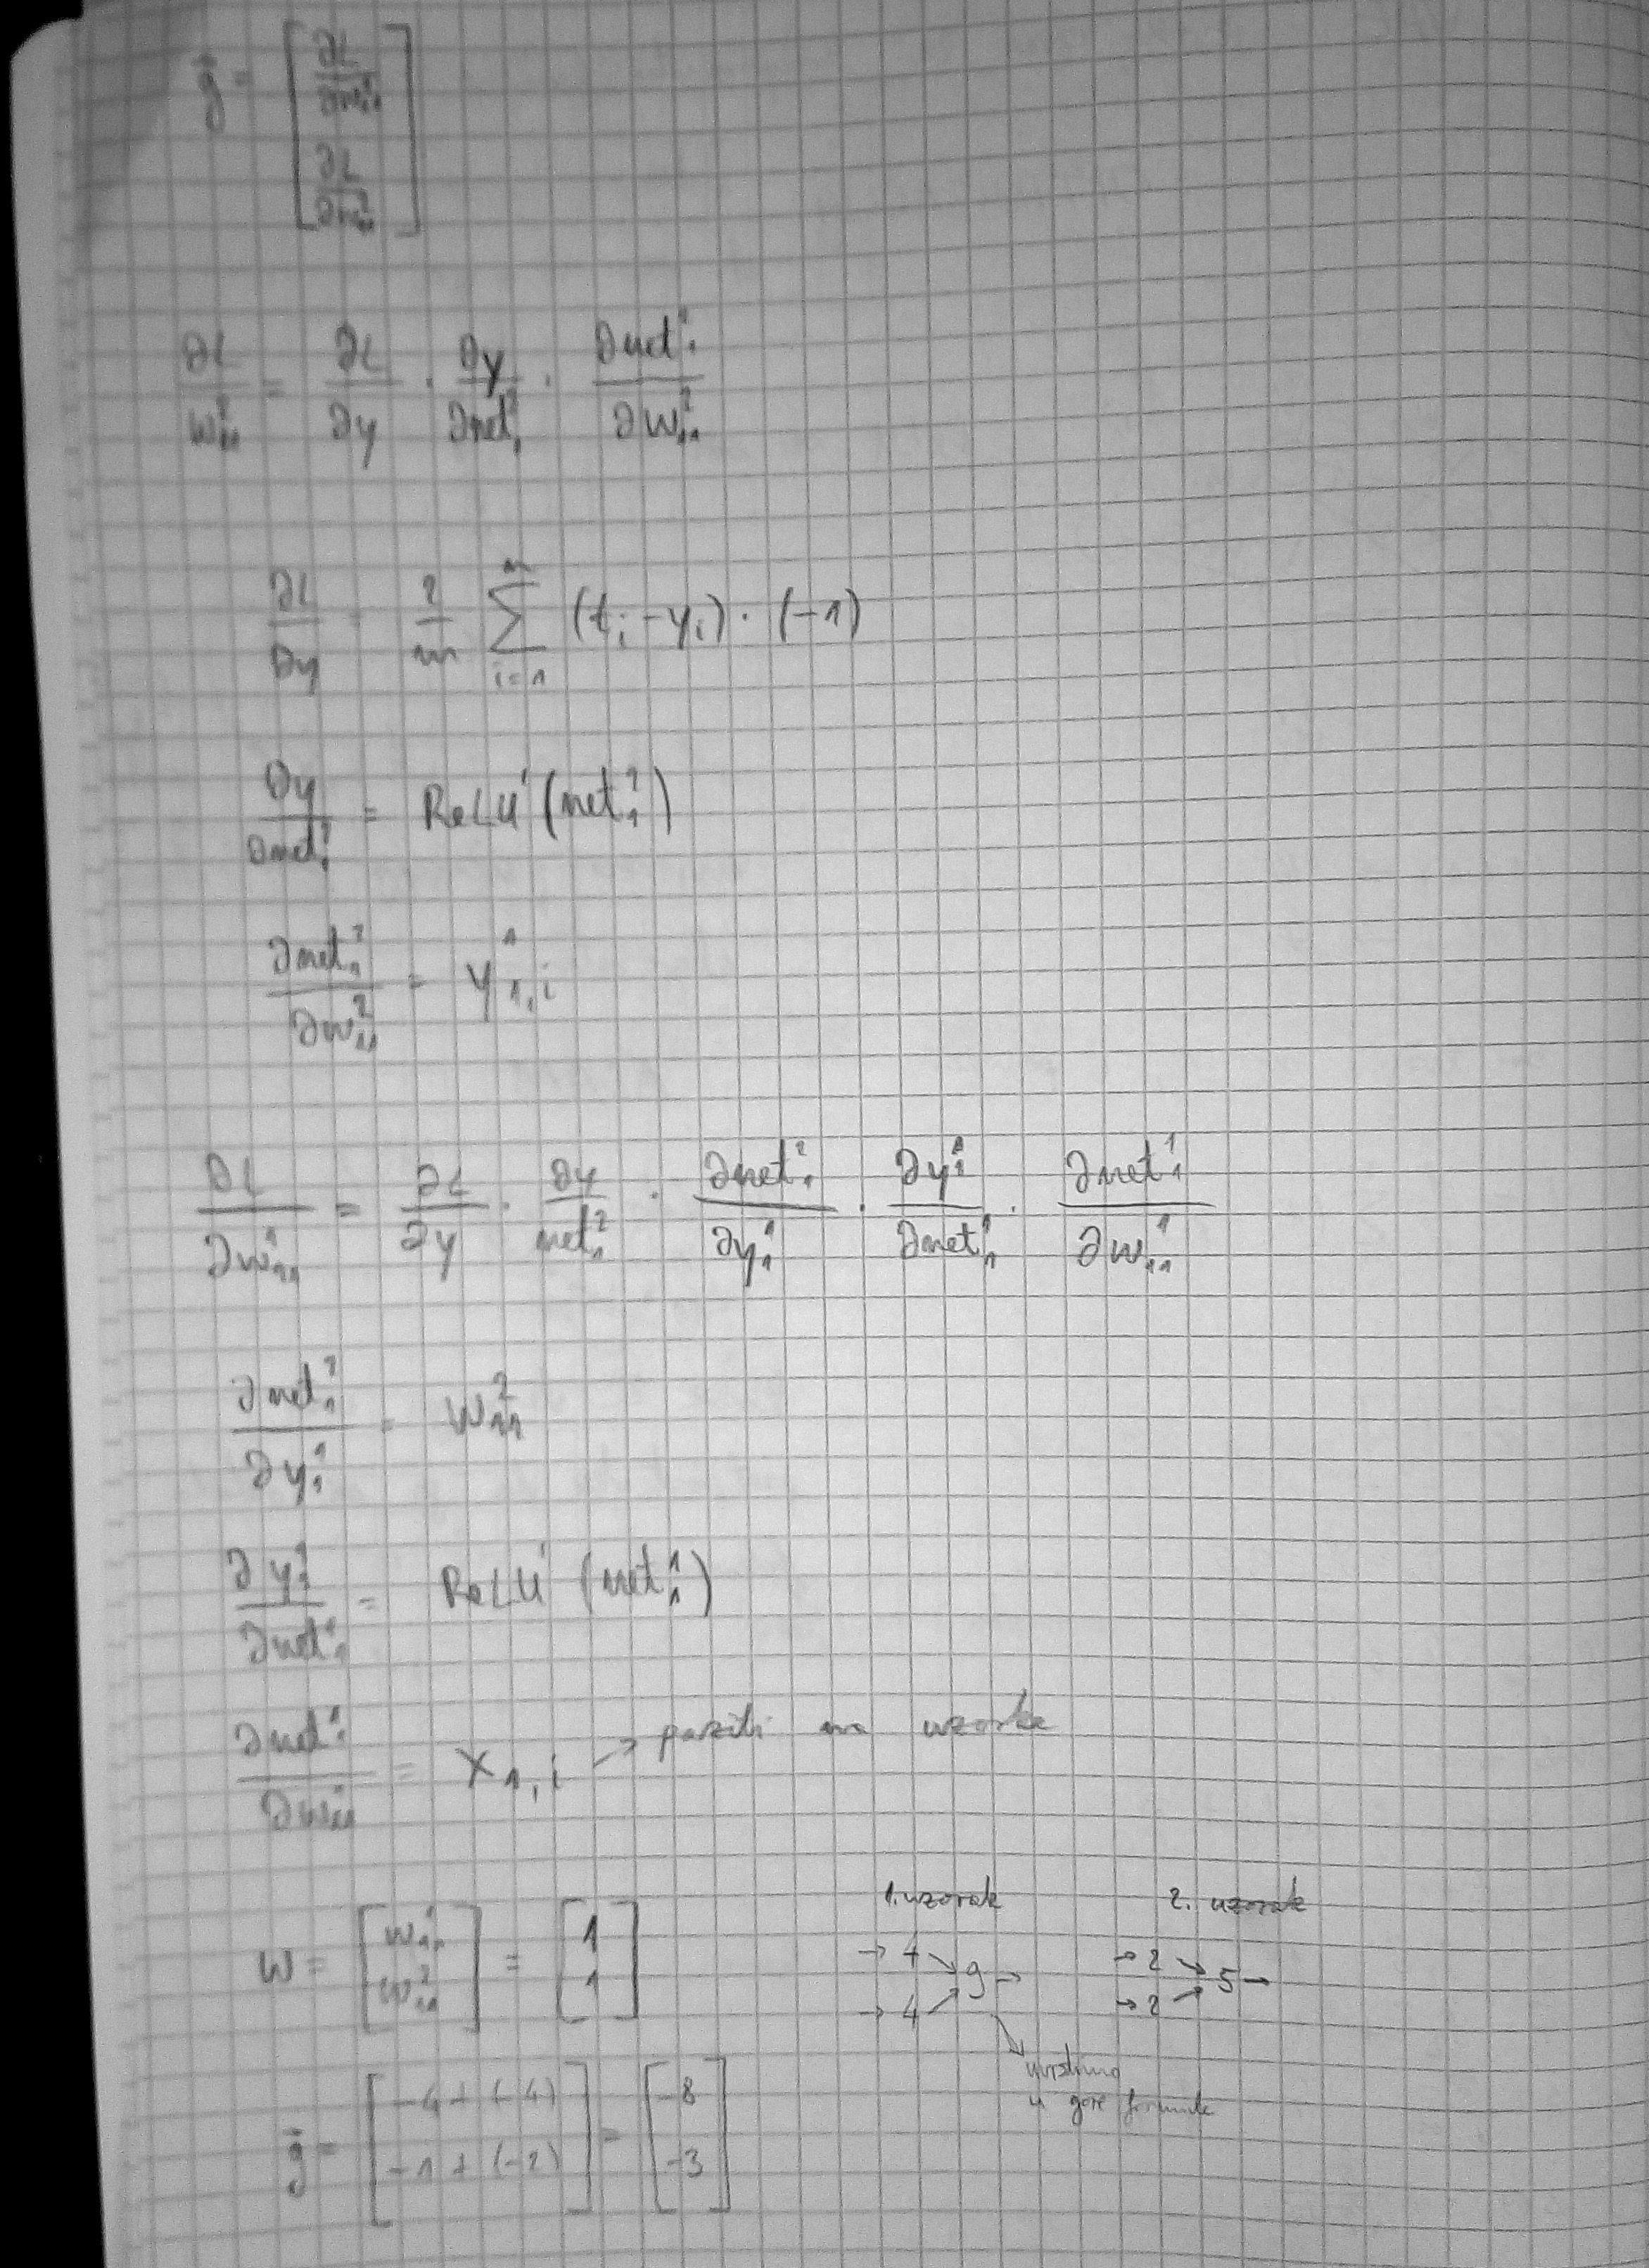 g⃗ = [ ∂L/∂w₁₁¹ ; ∂L/∂w₁₁² ]
∂L/w₁₁² = ∂L/∂y · ∂y/∂net₁² · ∂net₁²/∂w₁₁²
∂L/∂y = 2/m Σ_{i=1}^{m} (tᵢ - yᵢ) · (-1)
∂y/∂net₁² = ReLU'(net₁²)
∂net₁²/∂w₁₁² = y¹₁,ᵢ
∂L/∂w₁₁¹ = ∂L/∂y · ∂y/net₁² · ∂net₁²/∂y₁¹ · ∂y₁¹/∂net₁¹ · ∂net₁¹/∂w₁₁¹
∂net₁²/∂y₁¹ = w₁₁²
∂y₁¹/∂net₁¹ = ReLU'(net₁¹)
∂net₁¹/∂w₁₁¹ = x₁,ᵢ → paziti na uzorke
1. uzorak 2. uzorak
w = [ w₁₁¹ ; w₁₁² ] = [ 1 ; 1 ]
→ 4 ↘ → 2 ↘
9 → 5 →
→ 4 ↗ → 2 ↗
uvrstimo
u gore formule
g⃗ = [ -4 + (-4) ; -1 + (-2) ] = [ -8 ; -3 ]